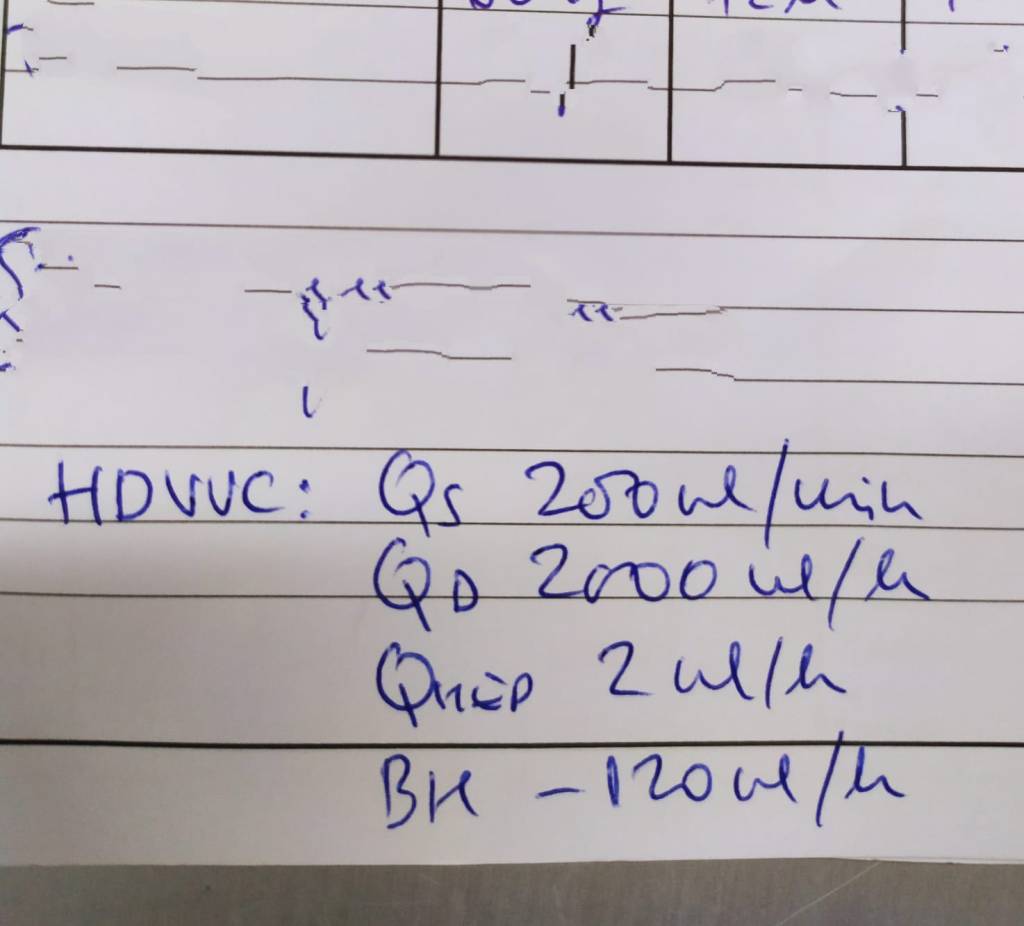 HDVVC: QS 200 ml/min
QD 2000 ml/h
QHEP 2 ml/h
BH - 120 ml/h